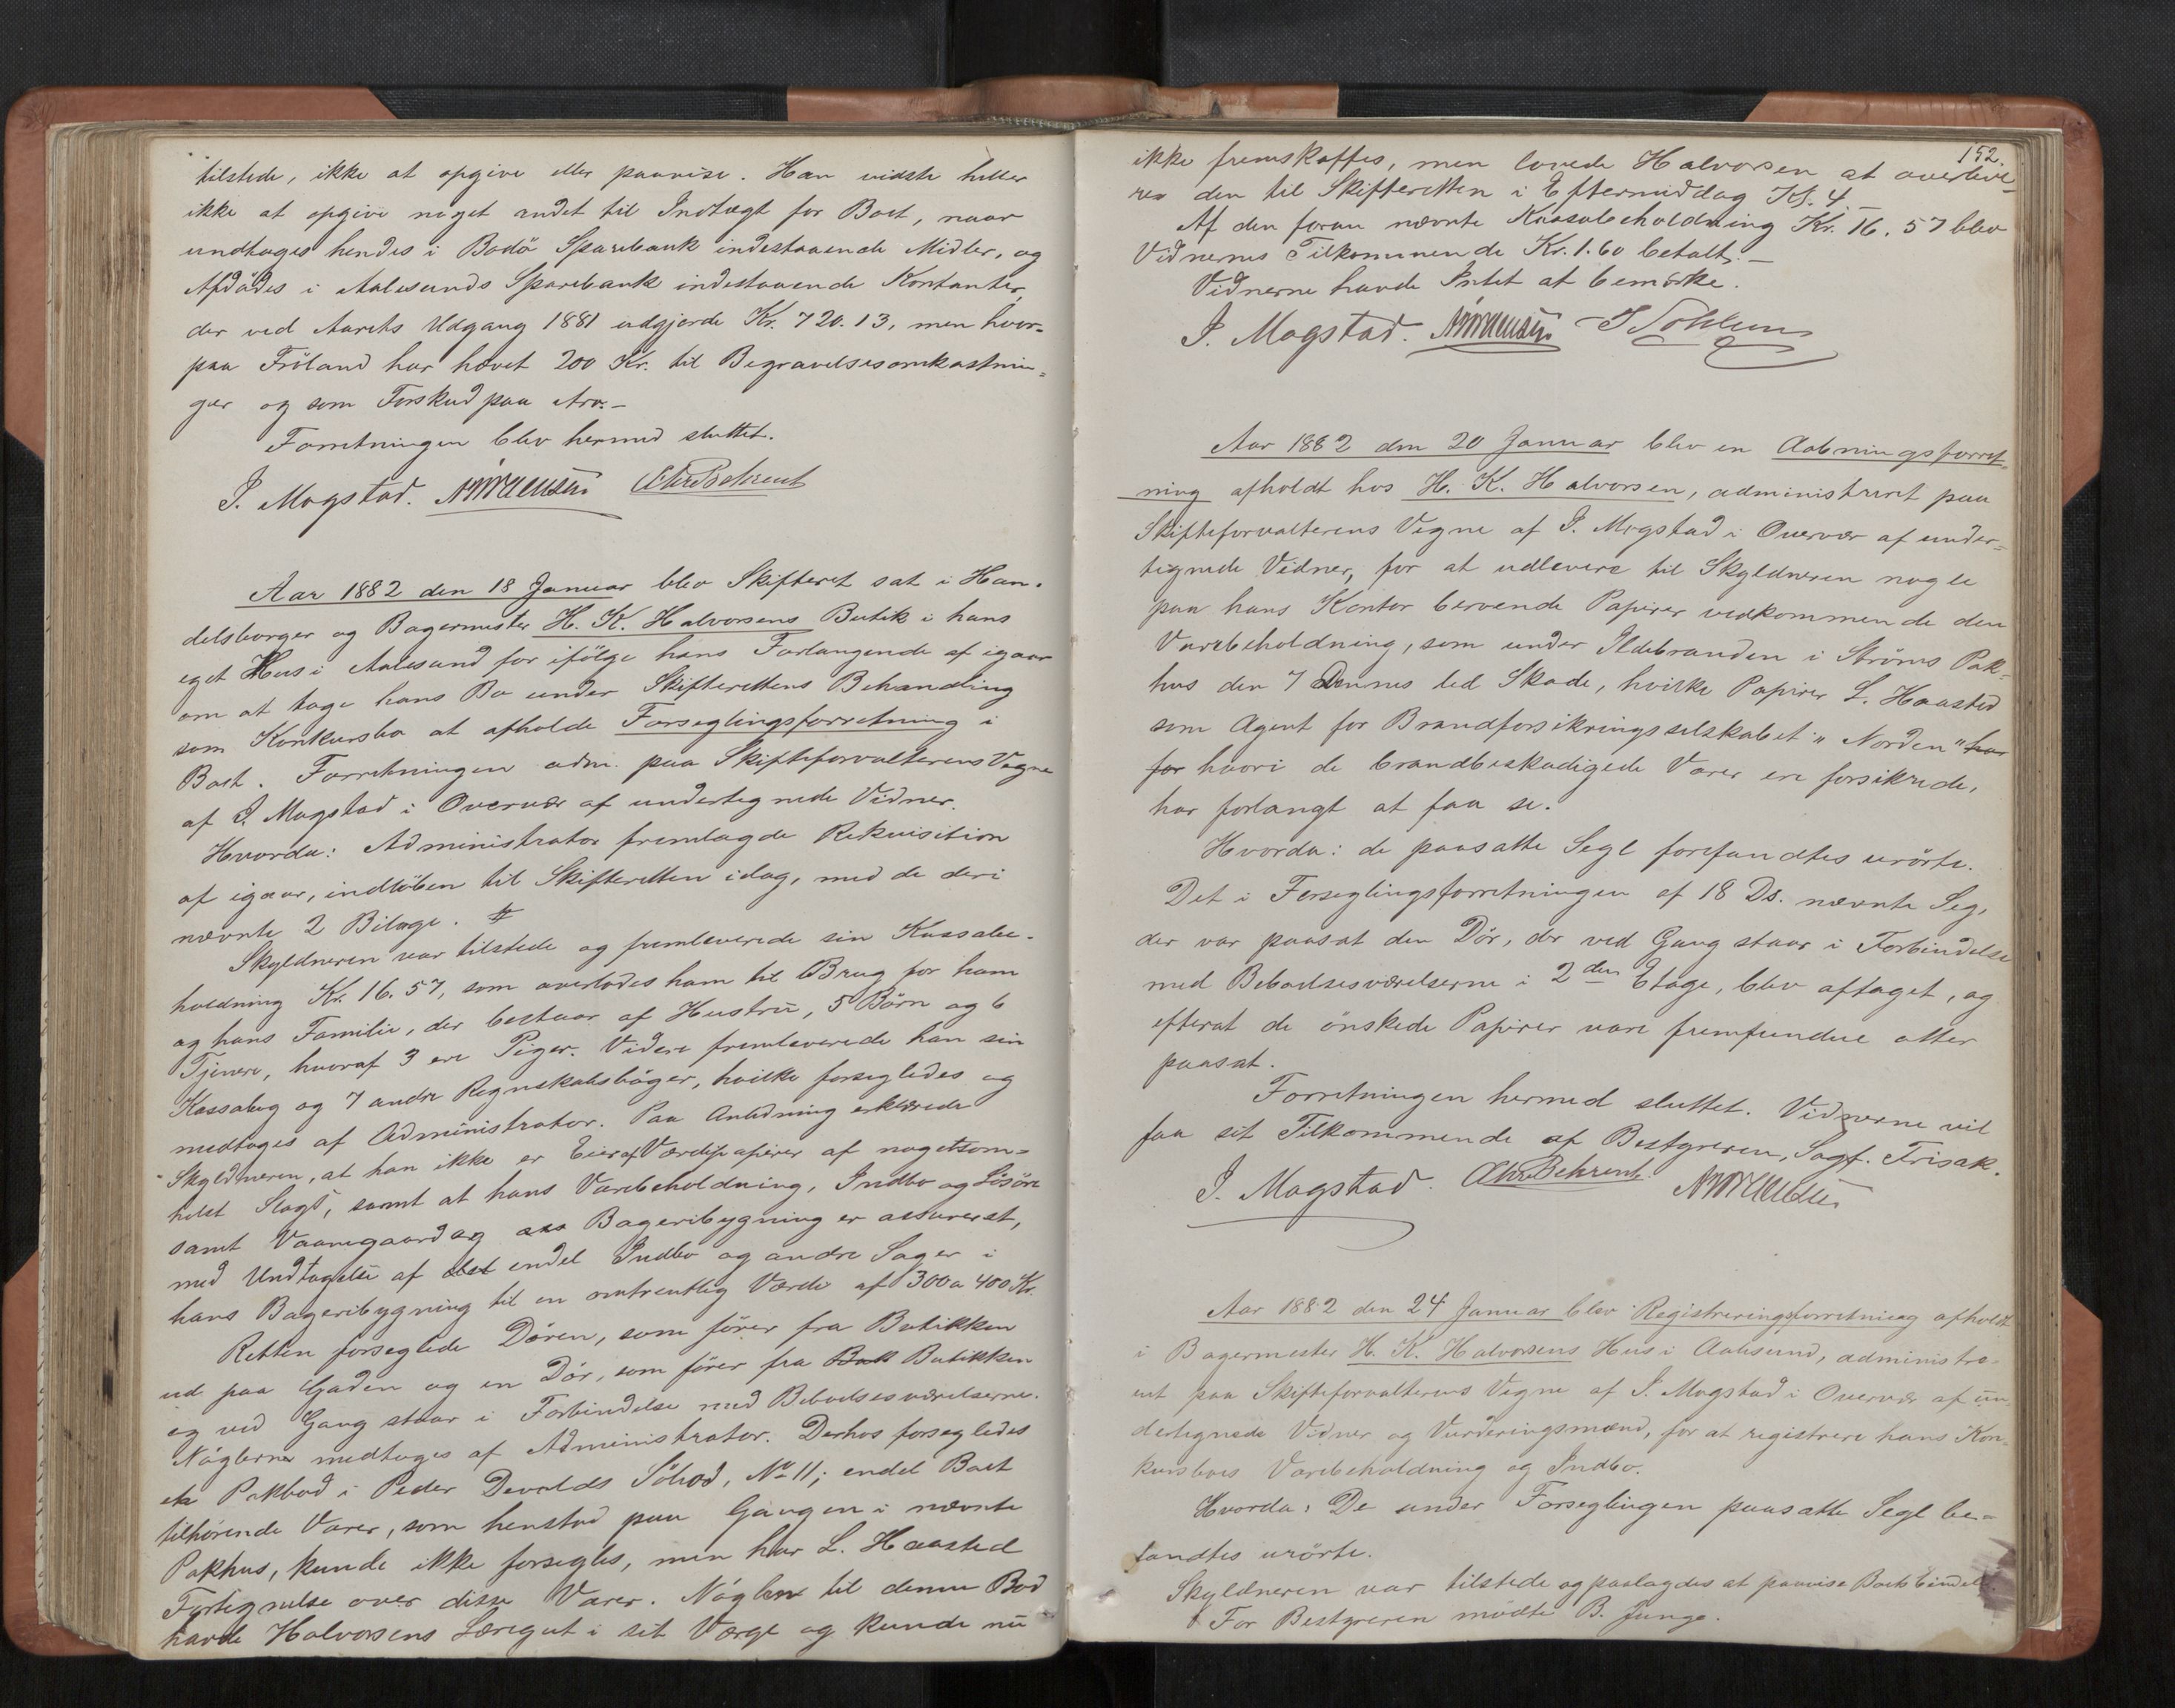 tilstede, ikke at opgive eller paavise. Han vidste heller
ikke at opgive noget andet til Indtægt for Boet, naar
undtages hendes i Bodö Sparebank indestaaende Midler, og
Afdödes i Aalesunds Sparebank indestaaende Kontanter,
der ved Aarets Udgang 1881 udgjorde Kr. 720.13, men hvor-
paa Fröland har hævet 200 Kr. til Begravelsesomkostnin-
ger og som Forskud paa Arv.-
Forretningen blev hermed sluttet.
J. Mogstad. Chr Behrent
Aar 1882 den 18 Januar blev Skifteret sat i Han-
delsborger og Bagermester H. K. Halvorsens Butik i hans
eget Hus i Aalesund for ifölge hans Forlangende af igaar
om at tage hans Bo under Skifterettens Behandling
som Konkursbo at afholde Forseglingsforretning i
Boet. Forretningen adm. paa Skifteforvalterens Vegne
af J. Mogstad i Overvær af undertegnede Vidner.
Hvorda: Administrator fremlagde Rekvisition
af igaar, indlöben til Skifteretten idag, med de deri
nævnte 2 Bilage.
Skyldneren var tilstede og fremleverede sin Kassabe-
holdning Kr. 16.57, som overlodes ham til Brug for ham
og hans Familie, der bestaar af Hustru, 5 Börn og 6
Tjenere, hvoraf 3 ere Piger. Videre fremleverede han sin
Kassabog og 7 andre Regnskabsböger, hvilke forsegledes og
medtoges af Administrator. Paa Anledning erklærede
Skyldneren, at han ikke er Eier af Værdipapirer af nogetsom-
helst Slags, samt at hans Varebeholdning, Indbo og Lösöre
samt Vaaningsgaard og Bageribygning er assureret,
med Undtagelse af endel Indbo og andre Sager i
hans Bageribygning til en omtrentlig Værdi af 300 a 400 Kr.
Retten forseglede Dören, som förer fra Butikken
ud paa Gaden og en Dör, som förer fra Butikken
og ved Gang staar i Forbindelse med Beboelsesværelserne.
Nöglerne medtoges af Administrator. Derhos forsegledes
en Pakbod i Peder Devolds Söbod, No 11; endel Boet
tilhörende Varer, som henstod paa Gangen i nævnte
Pakhus, kunde ikke forsegles, men har L. Haasted
Fortegnelse over disse Varer. Nöglen til denne Bod
havde Halvorsens Læregut i sit Værge og kunde nu
152.
ikke fremskaffes, men lovede Halvorsen at overleve-
re den til Skifteretten i Eftermiddag Kl. 4.
Af den foran nævnte Kassabeholdning Kr. 16.57 blev
Vidnernes Tilkommende Kr. 1.60 betalt.-
Vidnerne havde Intet at bemærke.
J. Mogstad.
Aar 1882 den 20 Januar blev en Aabningsforret-
ning afholdt hos H. K. Halvorsen, administreret paa
Skifteforvalterens Vegne af J. Mogstad i Overvær af under-
tegnede Vidner, for at udlevere til Skyldneren nogle
paa hans Kontor beroende Papirer vedkommende den
Varebeholdning, som under Ildebranden i Ströms Pak-
hus den 7 Dennes led Skade, hvilke Papirer L. Haasted
som Agent for Brandforsikringsselskabet "Norden" har
for hvori de brandbeskadigede Varer ere forsikrede,
har forlangt at faa se.
Hvorda: de paasatte Segl forefandtes urörte.
Det i Forseglingsforretningen af 18 Ds. nævnte Segl,
der var paasat den Dör, der ved Gang staar i Forbindelse
med Beboelsesværelserne i 2den Etage, blev aftaget, og
efterat de önskede Papirer vare fremfundne atter
paasat.
Forretningen hermed sluttet. Vidnerne vil
faa sit Tilkommende af Bestyreren, Sagf. Frisak.
J. Mogstad. Chr Behrent
Aar 1882 den 24 Januar blev Registreringsforretning afholdt
i Bagermester H. K. Halvorsens Hus i Aalesund, administre-
ret paa Skifteforvalterens Vegne af J. Mogstad i Overvær af un-
dertegnede Vidner og Vurderingsmænd, for at registrere hans Kon-
kursboes Varebeholdning og Indbo.
Hvorda: De under Forseglingen paasatte Segl be-
fandtes urörte.
Skyldneren var tilstede og paalagdes at paavise Boets Eiendele
For Bestyreren mödte B. Junge.